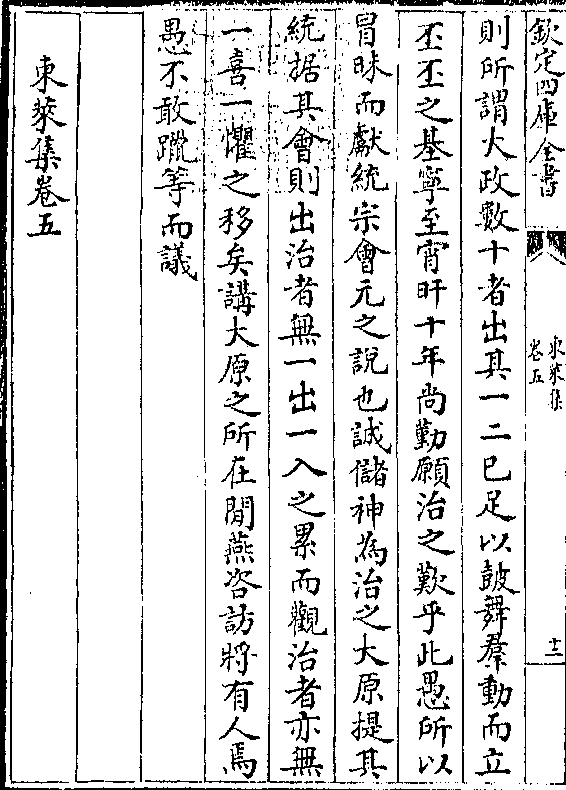 欽定四庫全書
東萊集
卷五
十二
則所謂大政數十者出其一二已足以鼓舞羣動而立
丕丕之基寧至宵旰十年尚勤願治之歎乎此愚所以
冒昧而獻統宗會元之說也誠儲神為治之大原提其
統据其會則出治者無一出一入之累而觀治者亦無
一喜一懼之移矣講大原之所在閒燕咨訪將有人焉
愚不敢躐等而議
東萊集卷五